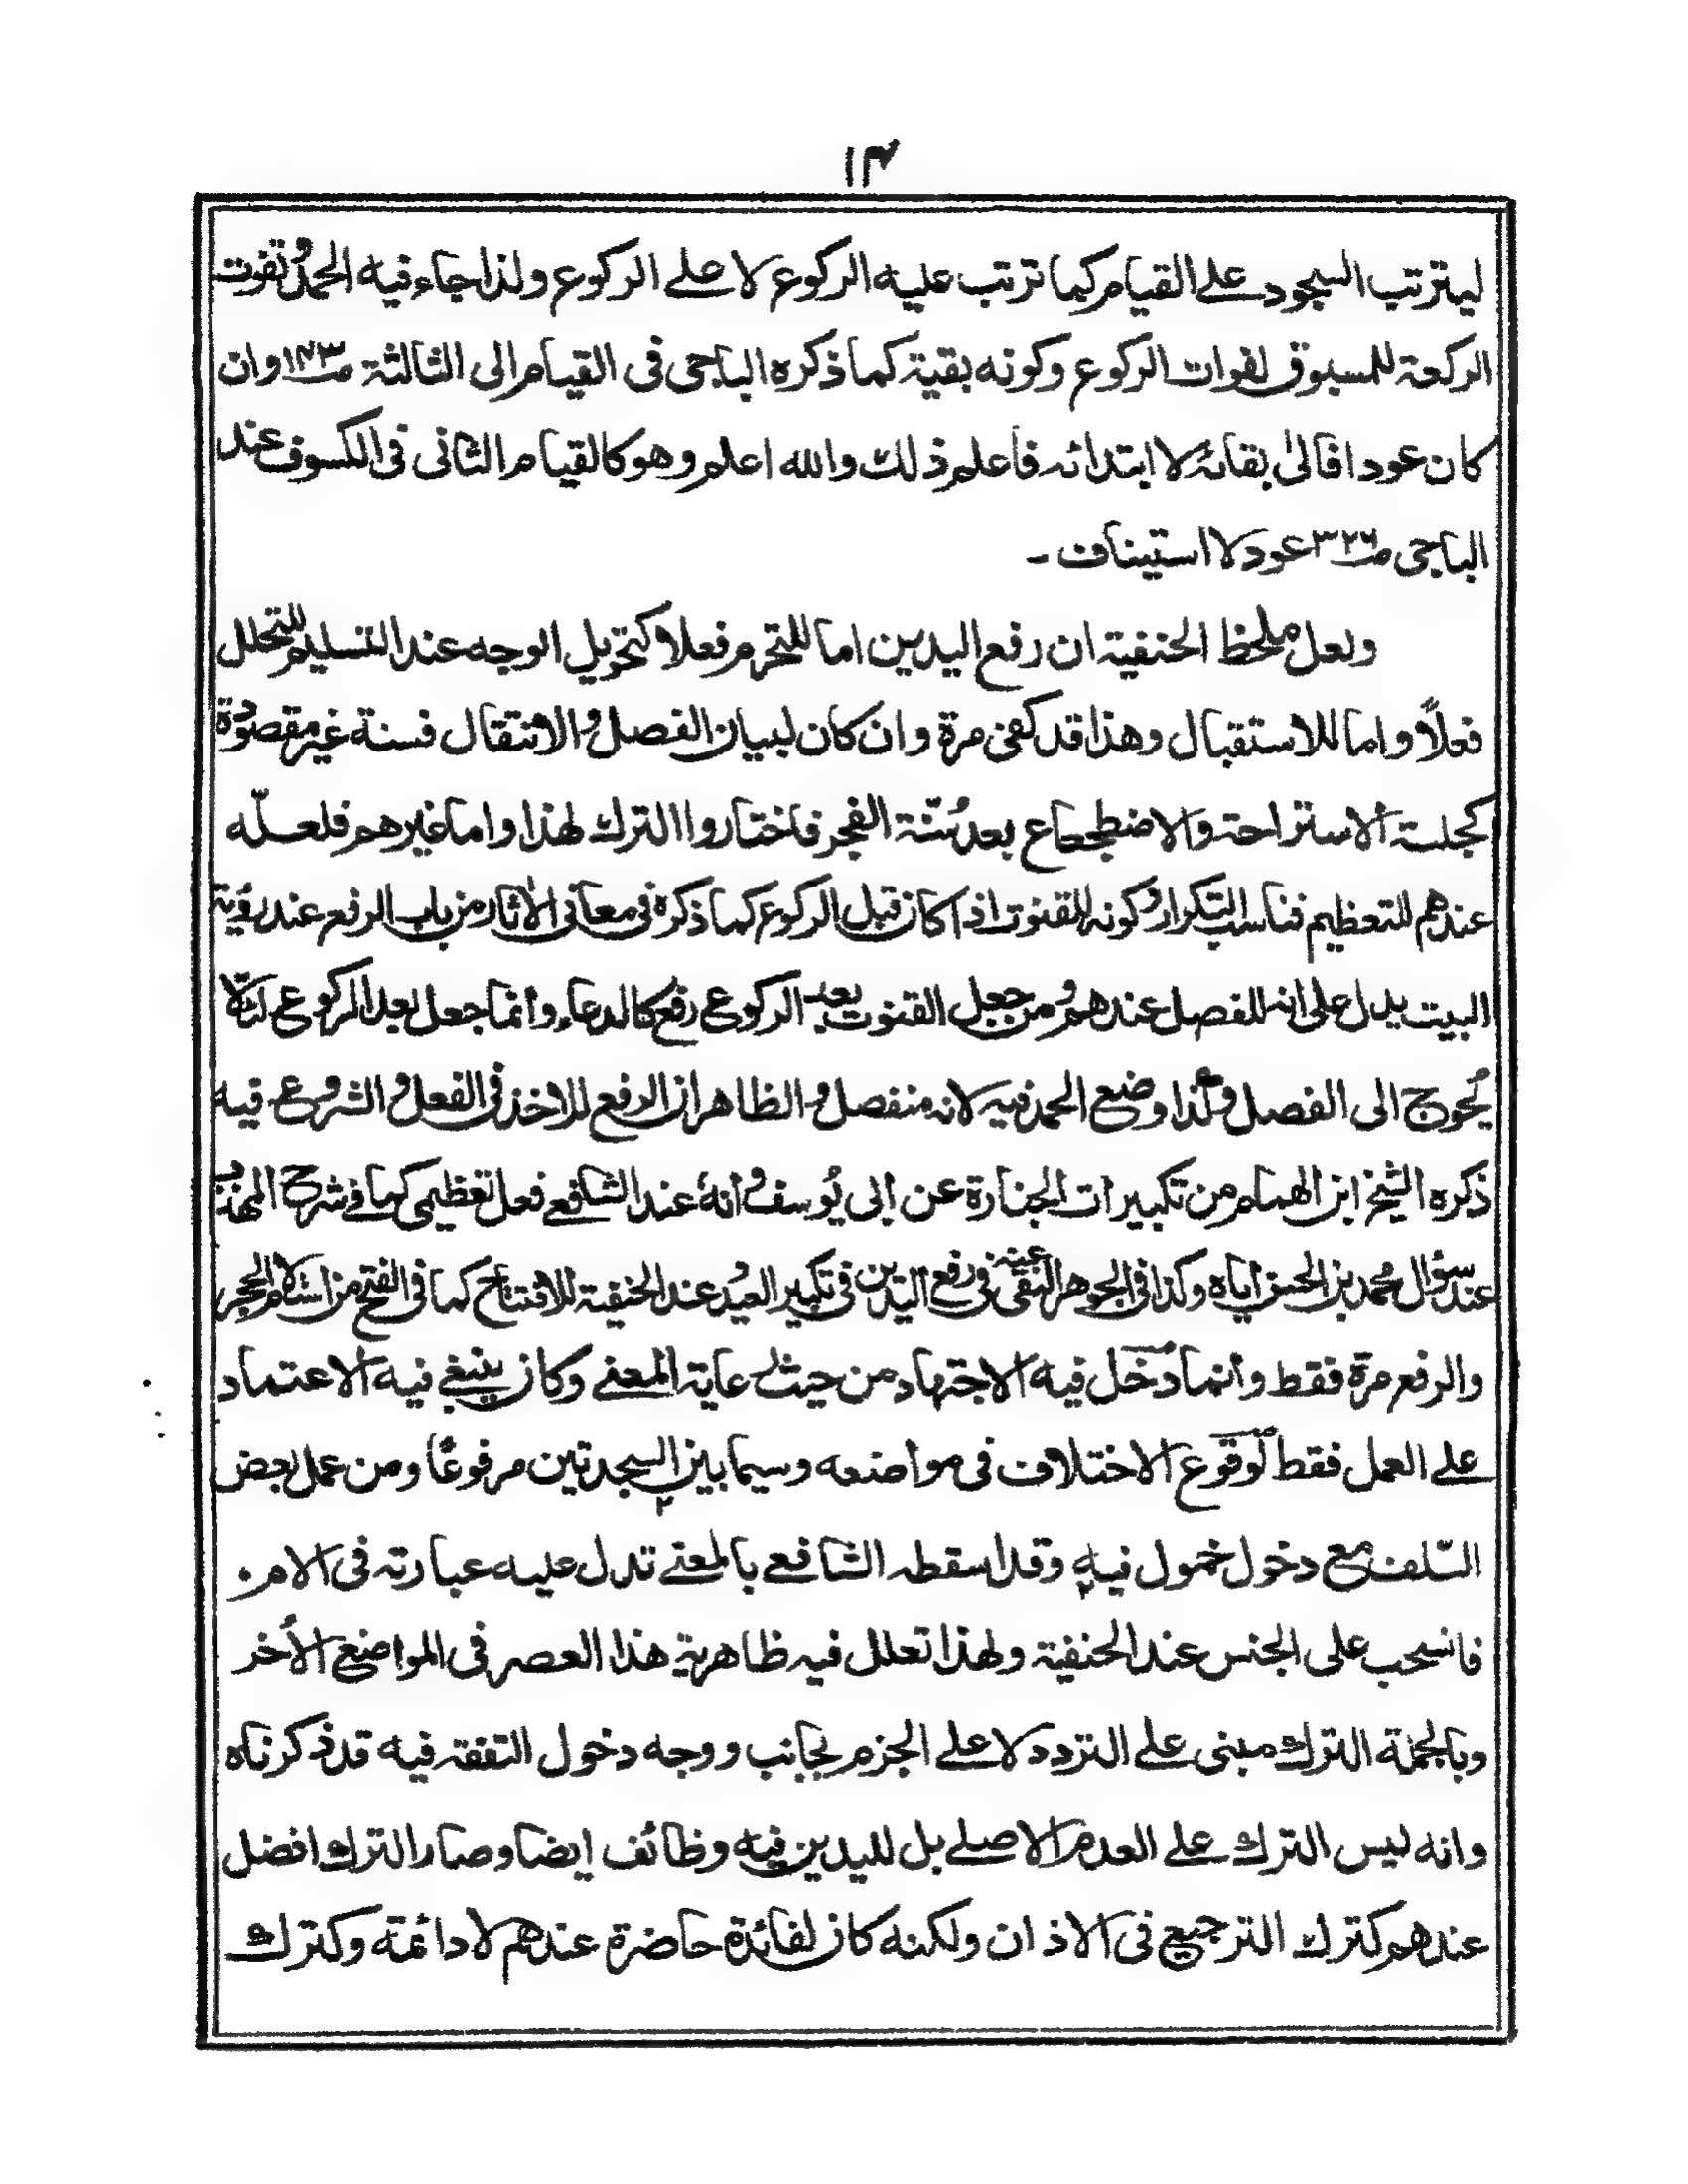 ۱۳
ليترتب السجود على القيام كما ترتب عليه الركوع لا على الركوع ولذا جاء فيه الحمد وتفوت
الركعة للمسبوق لفوات الركوع وكونه بقية كما ذكره الباجى فى القيام الى الثالثة ص۱۴۳ وان
كان عودا فالى بقائه لا ابتدائه فاعلم ذلك والله اعلم وهو كالقيام الثانى فى الكسوف عند
الباجى ص۳۲۶ عود لا استيناف -
ولعل ملحظ الحنفية ان رفع اليدين اما للتحرم فعلا كتحويل الوجه عند التسليم للتحلل
فعلاً واما للاستقبال وهذا قد كفى مرة وان كان لبيان الفصل والانتقال فسنة غير مقصودة
كجلسة الاستراحة والاضطجاع بعد سُنّة الفجر فاختاروا الترك لهذا واما غيرهم فلعلّه
عندهم للتعظيم فناسب التكرار وكونه للقنوت اذا كان قبل الركوع كما ذكره فى معانى الآثار من باب الرفع عند رؤية
البيت يدل على انه للفصل عندهم ومن جعل القنوت بعد الركوع رفع كالدعاء وانما جعل بعد الركوع لئلا
يُحوج الى الفصل ولذا وضع الحمد فيه لانه منفصل والظاهر ان الرفع للاخذ فى الفعل والشروع فيه
ذكره الشيخ ابن الهمام من تكبيرات الجنازة عن ابى يُوسف وانهٗ عند الشافعى فعل تعظيمى كما فى شرح المهذب
عند سؤال محمد بن الحسن اياه وكذا فى الجوهر النقى عنه فى رفع اليدين فى تكبير العيد وعند الحنفية للافتتاح كما فى الفتح من استلام الحجر
والرفع مرة فقط وانما دخل فيه الاجتهاد من حيث رعاية المعنى وكان ينبغى فيه الاعتماد
على العمل فقط لوقوع الاختلاف فى مواضعه وسيما بين السجدتين مرفوعًا ومن عمل بعض
السّلف مع دخول خمول فيه وقد اسقطه الشافعى بالمعنى تدل عليه عبارته فى الام.
فانسحب على الجنس عند الحنفية ولهذا تعلل فيه ظاهرية هذا العصر فى المواضع الأخر
وبالجملة الترك مبنى على التردد لا على الجزم لجانب ووجه دخول التفقه فيه قد ذكرناه
وانه ليس الترك على العدم الاصلى بل لليدين فيه وظائف ايضا وصار الترك افضل
عندهم كترك الترجيع فى الاذان ولكنه كان لفائدة حاضرة عندهم لا دائمة وكترك